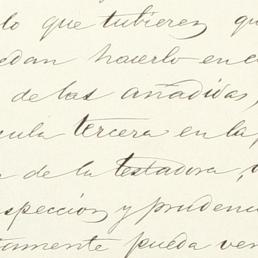 lo que tubieren qu
edan hacerlo en c
de las añadidas,
sula tercera en la
de la testadora,
spección y prudenci
tamente pueda ven